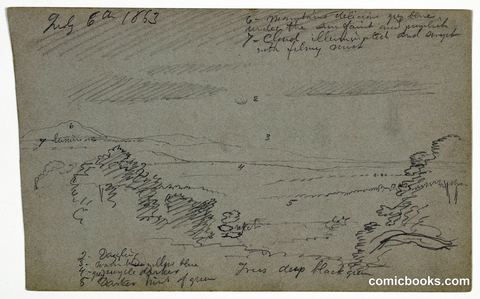 July 6th 1853
6 - Mountains delicious grey blue
under the sun faint and purplish
7 - Cloud illuminated and bright
with filmy
2
6
7 luminous
3
4
5
2 - Dazzling
3 - blue
4 - darker
5 Darker kind of green
Trees deep black green
comicbooks.com